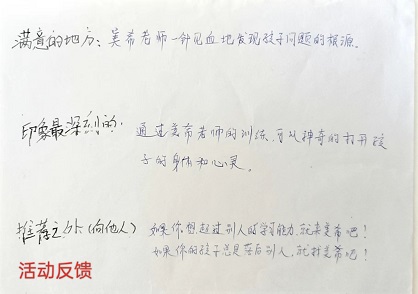 满意的地方：美希老师一针见血地发现孩子问题的根源。
印象最深刻的：通过美希老师的训练，可以神奇的打开孩
子的身体和心灵。
推荐之外（向他人） 如果你想超过别人的学习能力，就来美希吧！
如果你的孩子总是落后别人，就找美希吧！
活动反馈